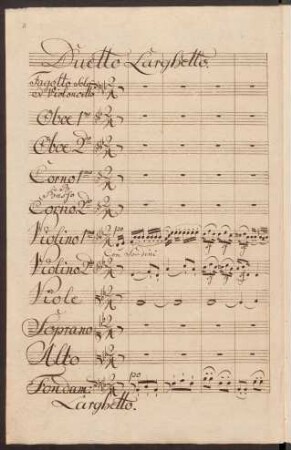 Duetto Larghetto.
Fagotto Solo
o Violoncello
Oboe 1mo
Oboe 2do
Corno 1mo
Corno 2do
Violino 1mo po
Con Sordini
Violino 2do
Viole
Soprano
Alto
Fondam: po
Larghetto.